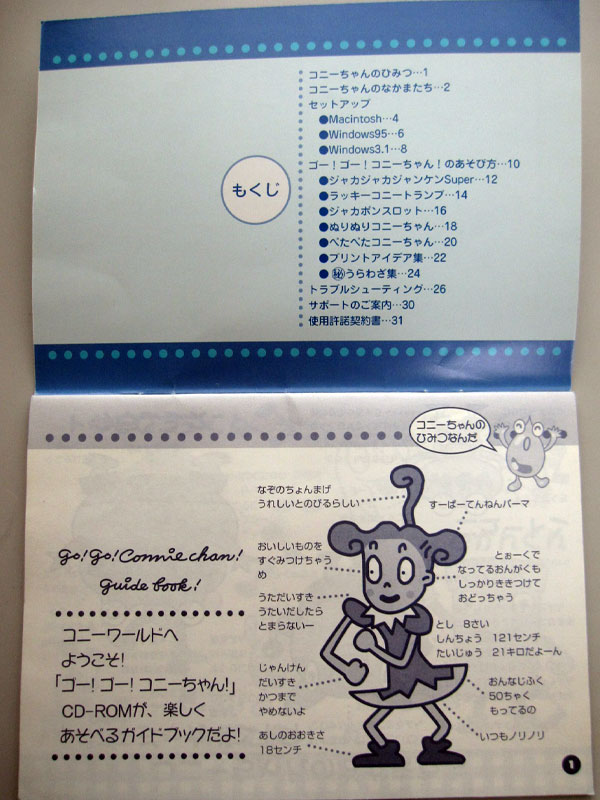 もくじ
コニーちゃんのひみつ…1
コニーちゃんのなかまたち…2
セットアップ
●Macintosh…4
●Windows95…6
●Windows3.1…8
ゴー!ゴー!コニーちゃん!のあそび方…10
●ジャカジャカジャンケンSuper…12
●ラッキーコニートランプ…14
●ジャカポンスロット…16
●ぬりぬりコニーちゃん…18
●ぺたぺたコニーちゃん…20
●プリントアイデア集…22
●㊙うらわざ集…24
トラブルシューティング…26
サポートのご案内…30
使用許諾契約書…31
コニーちゃんの
ひみつなんだ
go! go! Connie chan!
guide book!
コニーワールドへ
ようこそ!
「ゴー!ゴー!コニーちゃん!」
CD-ROMが、楽しく
あそべるガイドブックだよ!
なぞのちょんまげ
うれしいとのびるらしい
おいしいものを
すぐみつけちゃう
め
うただいすき
うたいだしたら
とまらないー
じゃんけん
だいすき
かつまで
やめないよ
あしのおおきさ
18センチ
すーぱーてんねんパーマ
とぉーくで
なってるおんがくも
しっかりききつけて
おどっちゃう
とし 8さい
しんちょう 121センチ
たいじゅう 21キロだよーん
おんなじふく
50ちゃく
もってるの
いつもノリノリ
1